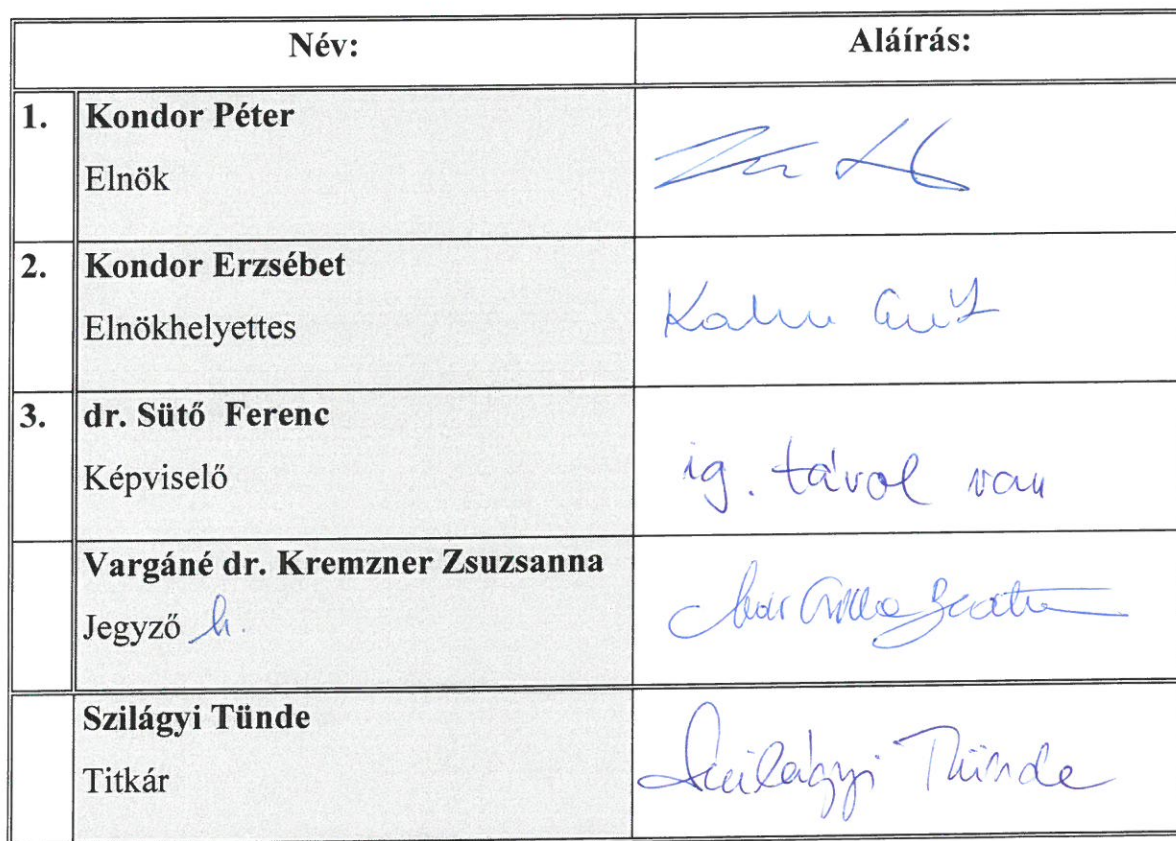 Név: Aláírás:
1. Kondor Péter
Elnök
2. Kondor Erzsébet
Elnökhelyettes
3. dr. Sütő Ferenc
Képviselő ig. távol van
Vargáné dr. Kremzner Zsuzsanna
Jegyző h.
Szilágyi Tünde
Titkár Szilágyi Tünde